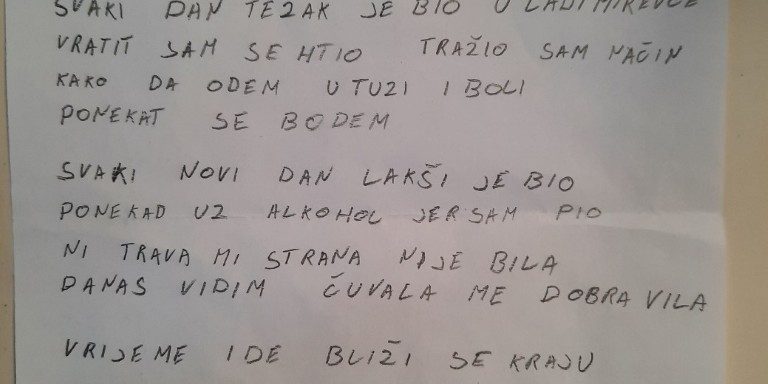 SVAKI DAN TEŽAK JE BIO U LADIMIREVCE
VRATIT SAM SE HTIO TRAŽIO SAM NAČIN
KAKO DA ODEM U TUZI I BOLI
PONEKAT SE BODEM
SVAKI NOVI DAN LAKŠI JE BIO
PONEKAD UZ ALKOHOL JER SAM PIO
NI TRAVA MI STRANA NIJE BILA
DANAS VIDIM ČUVALA ME DOBRA VILA
VRIJEME IDE BLIŽI SE KRAJU